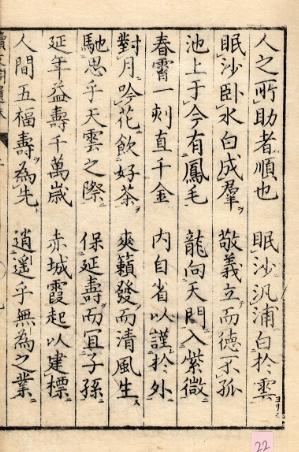 人之所助者順也　眠沙汎浦白於雲
眠沙臥水白成羣　敬義立而德不孤
池上于今有鳳毛　龍向天門入紫微
春宵一刻直千金　内自省以謹於外
對月吟花飲好茶　爽籟發而清風生
馳思乎天雲之際　保延壽而宜子孫
延年益壽千萬歳　赤城霞起以建標
人間五福壽為先　逍遥乎無為之業
22